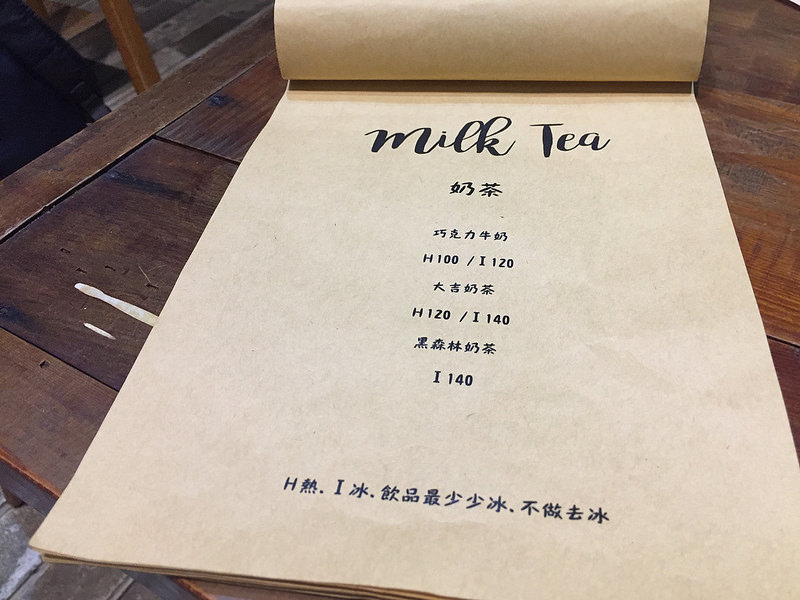 Milk Tea
奶茶
巧克力牛奶
H100 / I 120
大吉奶茶
H120 / I 140
黑森林奶茶
I 140
H熱. I 冰.飲品最少少冰.不做去冰